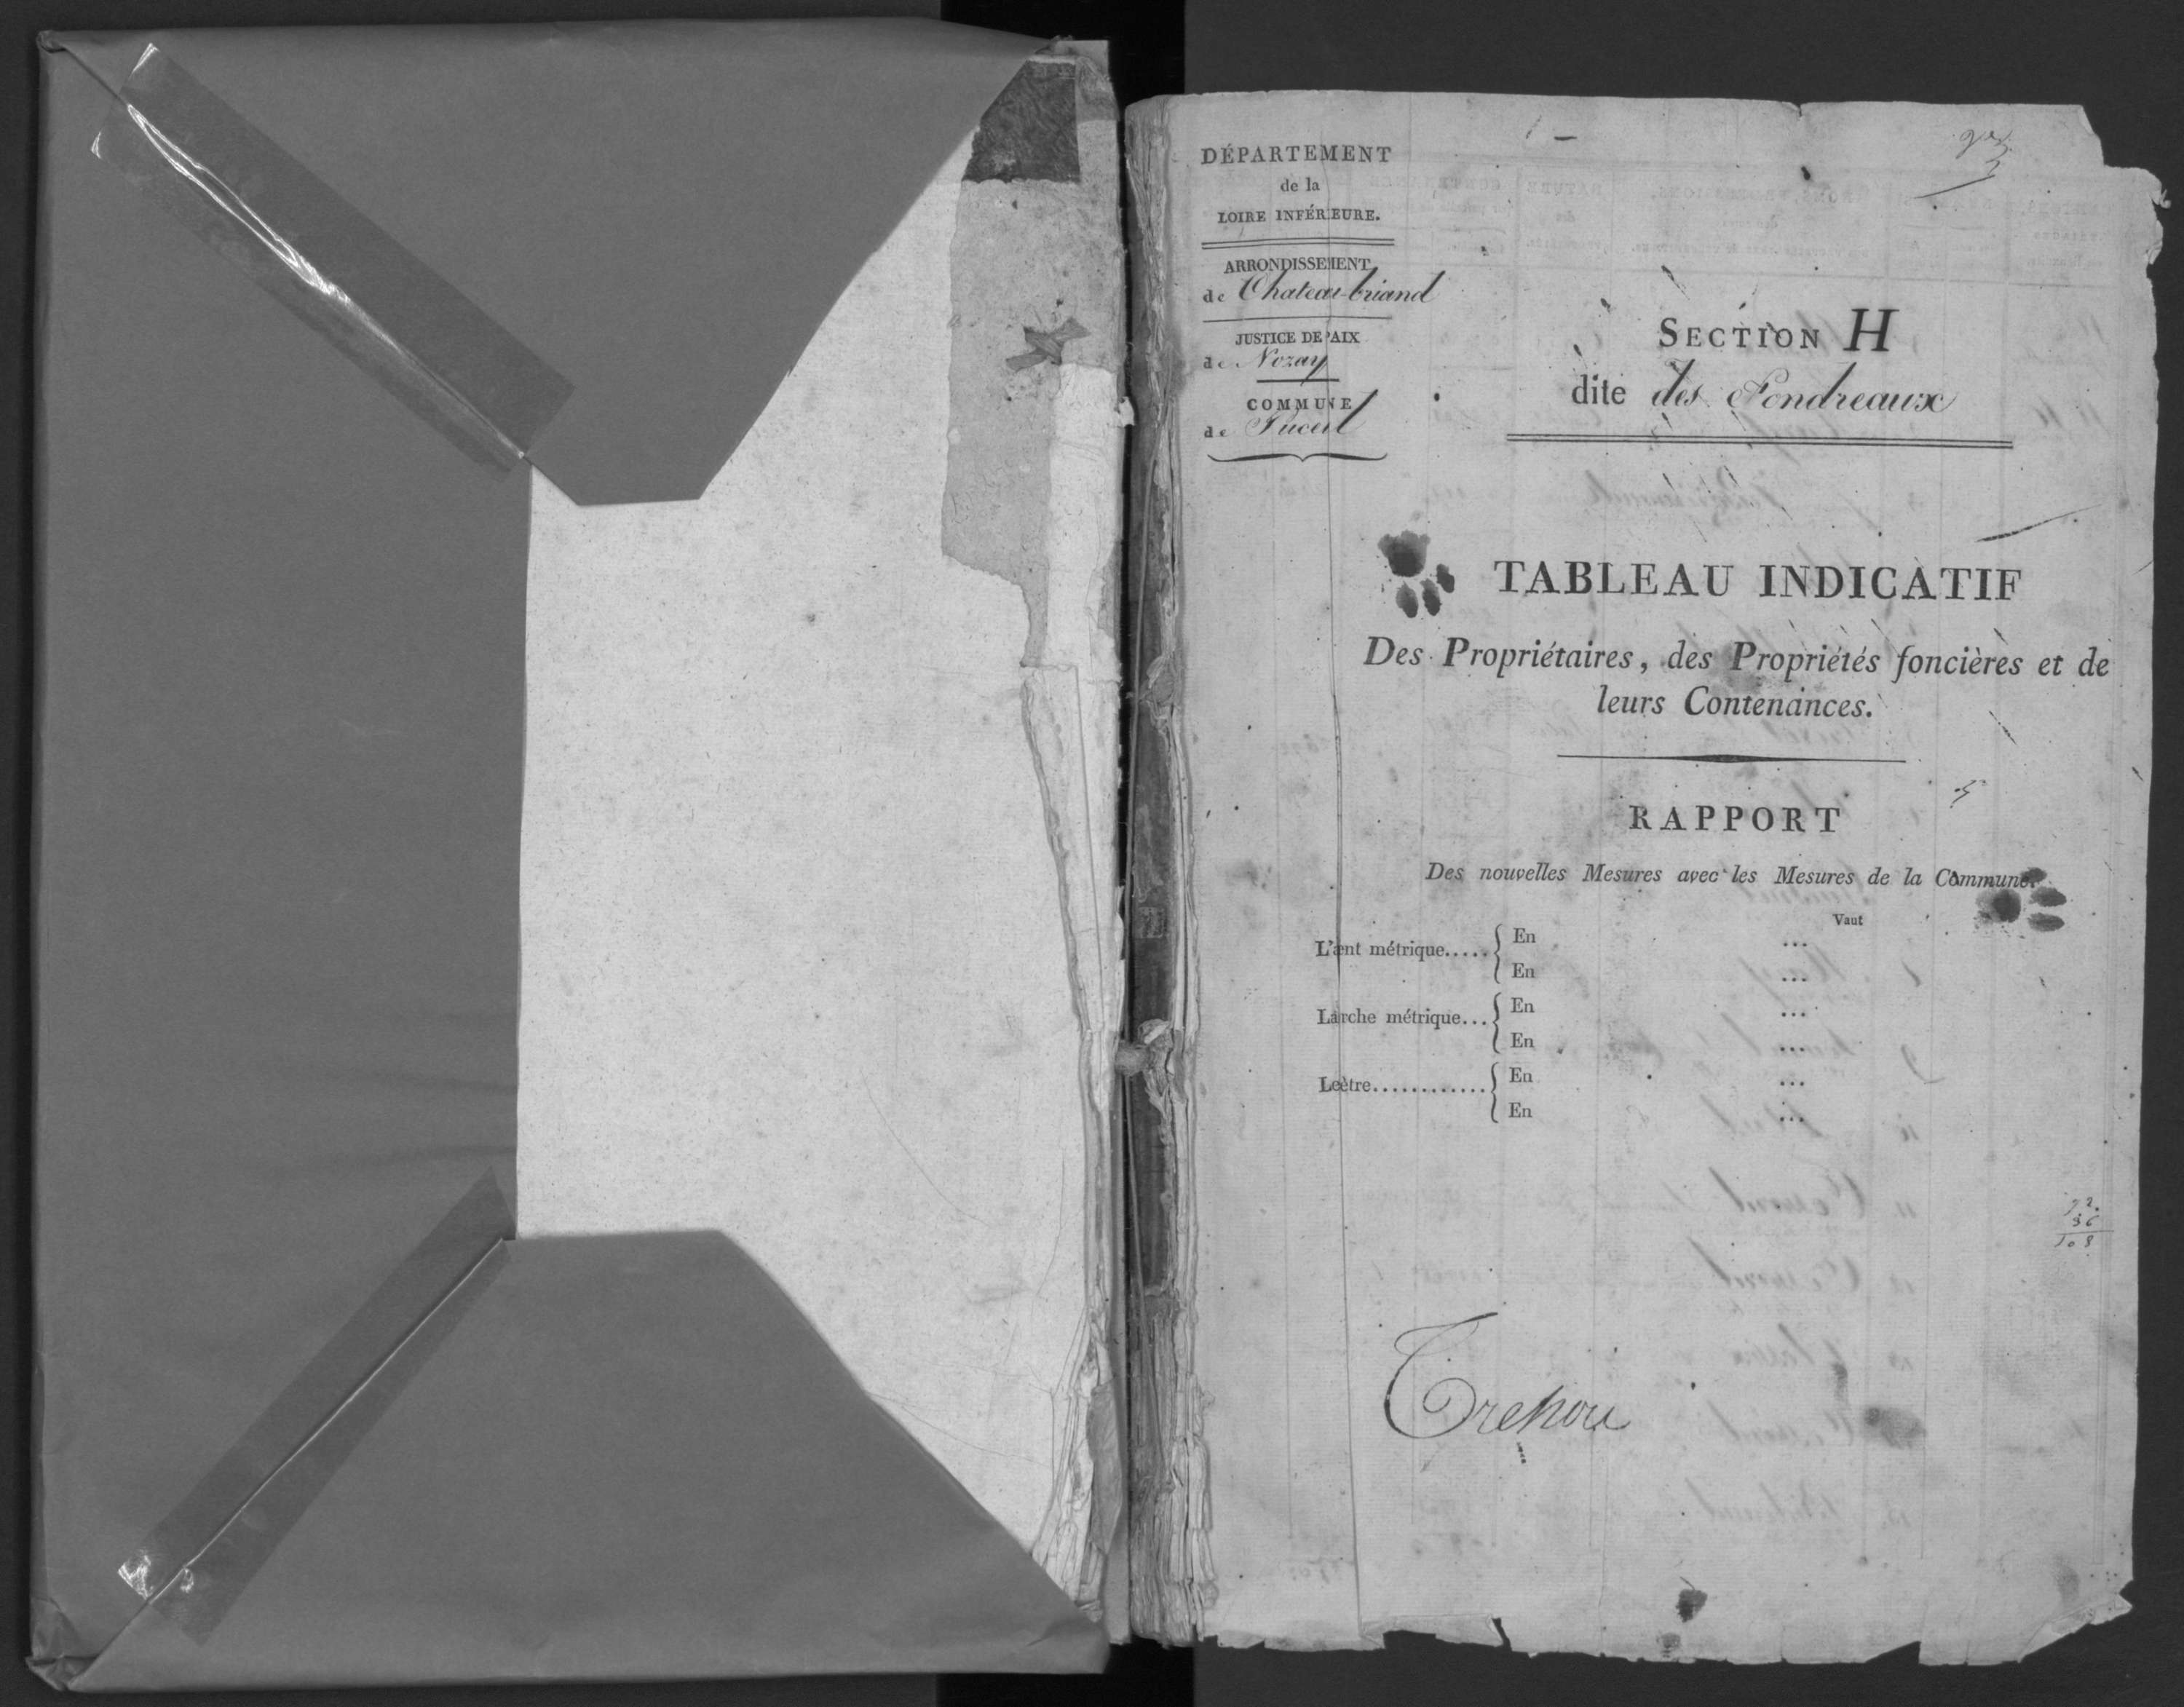 DÉPARTEMENT
de la
LOIRE INFÉRIEURE.
ARRONDISSEMENT
de Chateaubriand
JUSTICE DE PAIX
de Nozay
COMMUNE
de Puceul
SECTION H
dite des Fondreaux
TABLEAU INDICATIF
Des Propriétaires, des Propriétés foncières et de
leurs Contenances.
RAPPORT
Des nouvelles Mesures avec les Mesures de la Commune.
Vaut
L'arpent métrique..... { En ...
En ...
La perche métrique... { En ...
En ...
Le mètre............ { En ...
En ...
72.
36
108